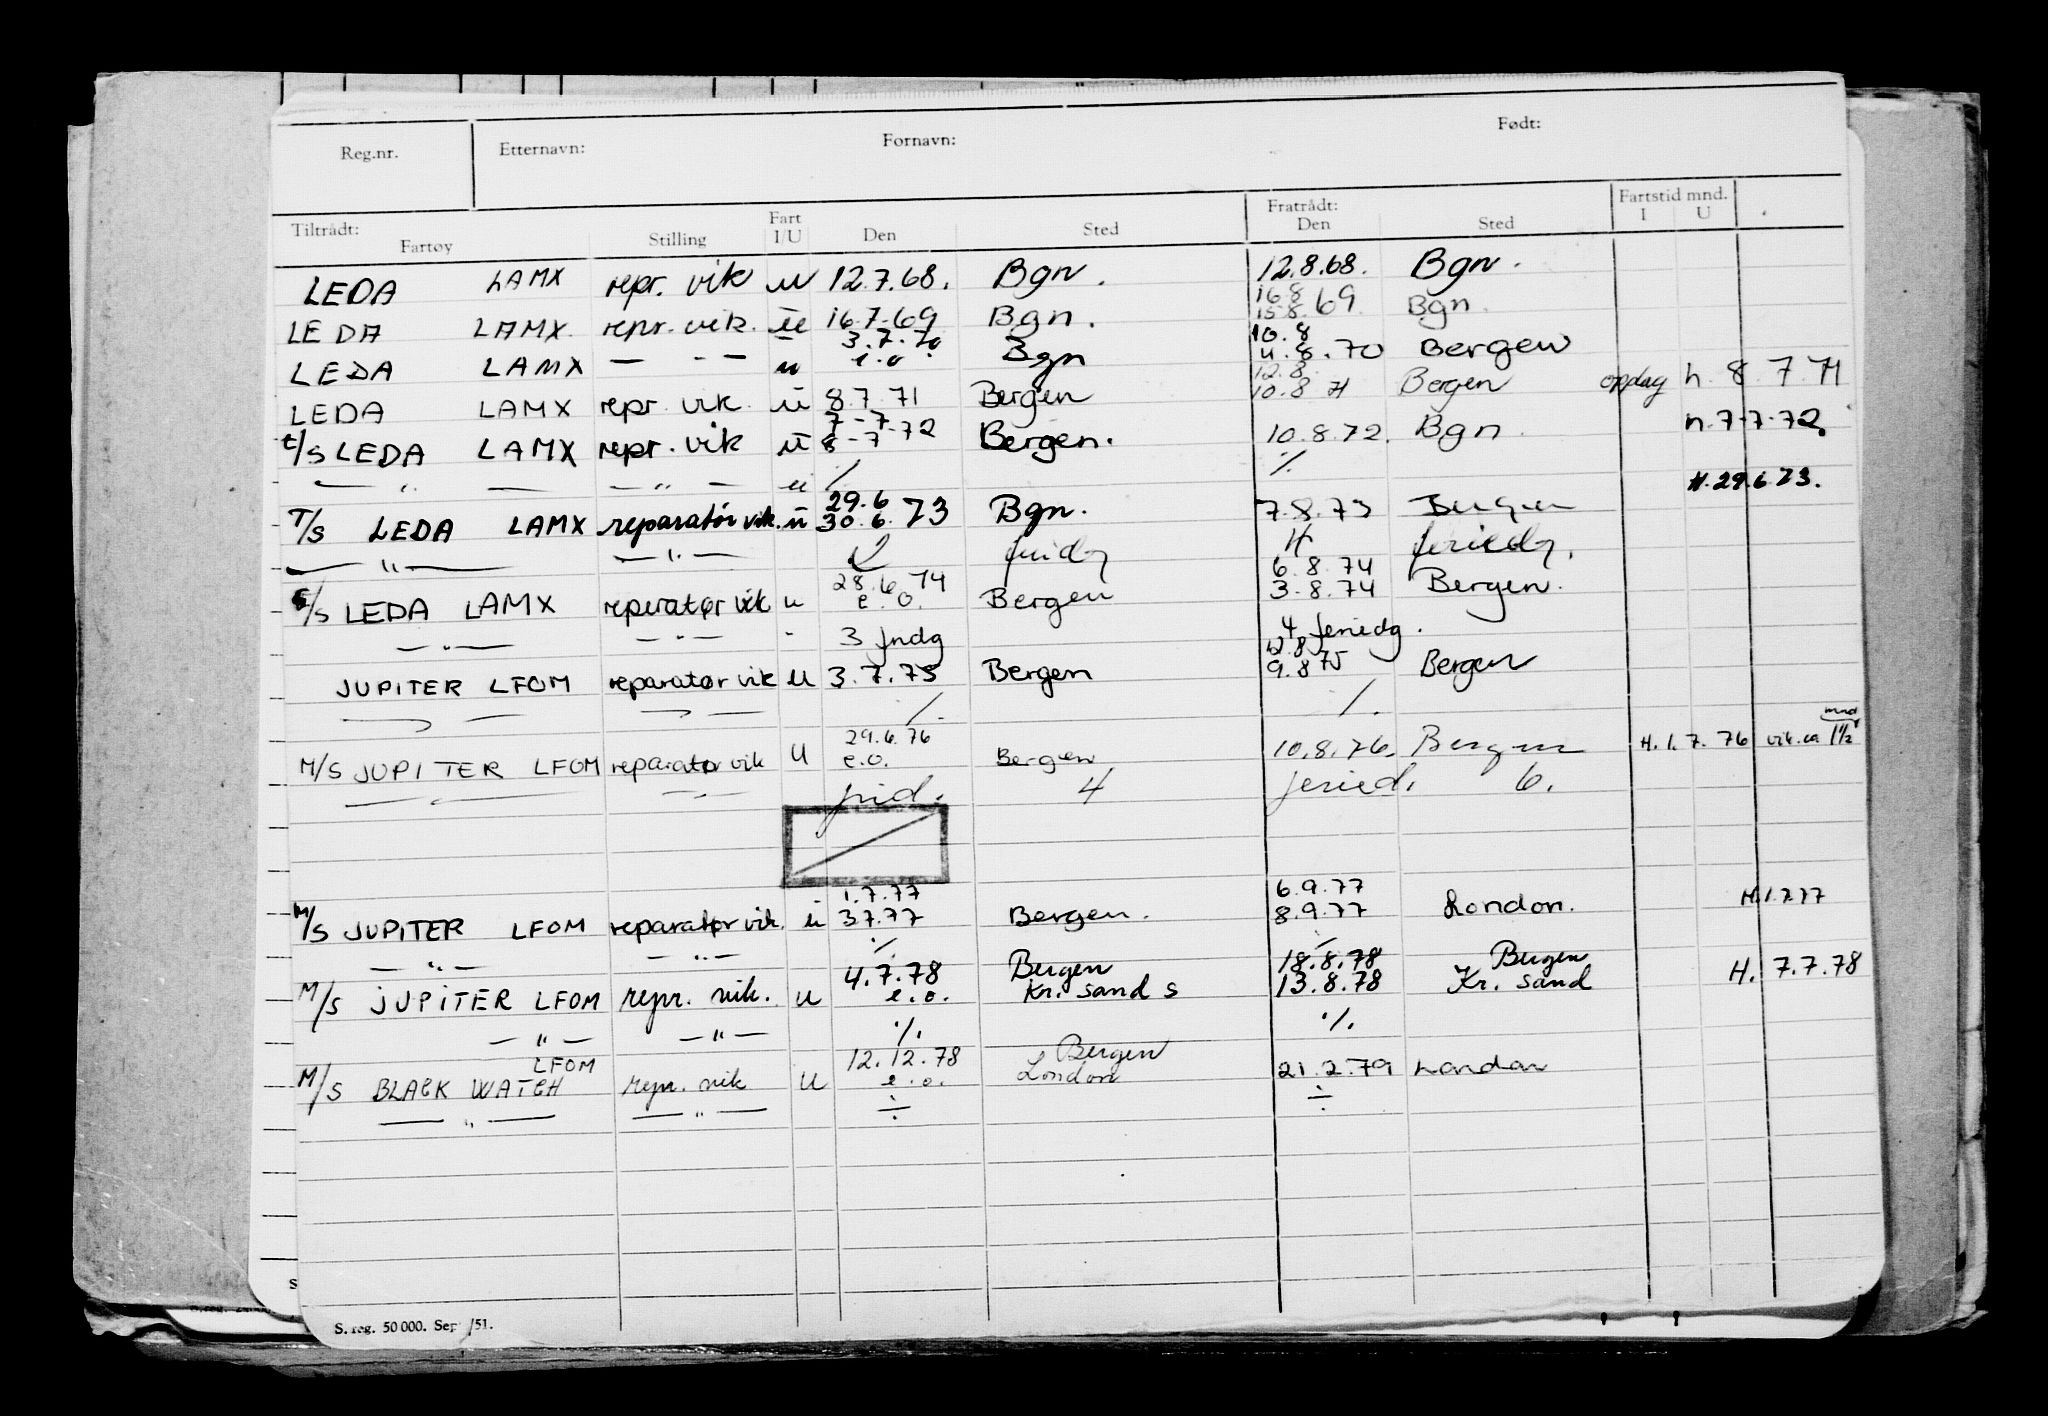 Reg.nr. Etternavn: Fornavn: Født:
Tiltrådt: Fartøy Stilling Fart I/U Den Sted Fratrådt: Den Sted Fartstid mnd. I U
LEDA LAMX repr. vik u 12.7.68. Bgn. 12.8.68. Bgn.
16.8
LEDA LAMX. repr. vik. u 16.7.69 Bgn. 15.8.69. Bgn.
3.7.70 10.8
LEDA LAMX — " — u e.o. Bgn 4.8.70 Bergen
12.8.
LEDA LAMX repr. vik. u 8.7.71 Bergen 10.8 71 Bergen oppdag h. 8.7.71
7-7-
t/s LEDA LAMX repr. vik u 8-7-72 Bergen. 10.8.72. Bgn. h.7-7-72.
— " — — — " — u ·/. ·/. H.29.6.73.
29.6
T/S LEDA LAMX reparatør vik. u 30.6.73 Bgn. 7.8.73 Bergen
— " — — " — 4 feriedg.
28.6.74 6.8.74
t/s LEDA LAMX reparatør vik u e.o. Bergen 3.8.74 Bergen.
— " — — " — - 3 4 feriedg.
12.8
JUPITER LFOM reparatør vik u 3.7.75 Bergen 9.8 75 Bergen
·/. ·/.
29.6.76 mnd
M/S JUPITER LFOM reparatør vik U e.o. Bergen 10.8.76. Bergen H.1.7.76 vik. ca 1½
— " — — " — 4 feried. 6.
1.7.77 6.9.77
M/S JUPITER LFOM reparatør vik. u 3.7.77 Bergen. 8.9.77 London. H.1.7.77
— " — — " — ·/. ·/.
4.7.78 Bergen 18.8.78 Bergen
M/S JUPITER LFOM repr. vik. u e.o. Kr. sand s 13.8.78 Kr. sand H. 7.7.78
— " — — " — ·/. ·/.
LFOM 12.12.78 Bergen
M/S BLACK WATCH repr. vik U e.o. London 21.2.79 London
— " — — " — ÷ ÷
S. reg. 50 000. Sep /51.